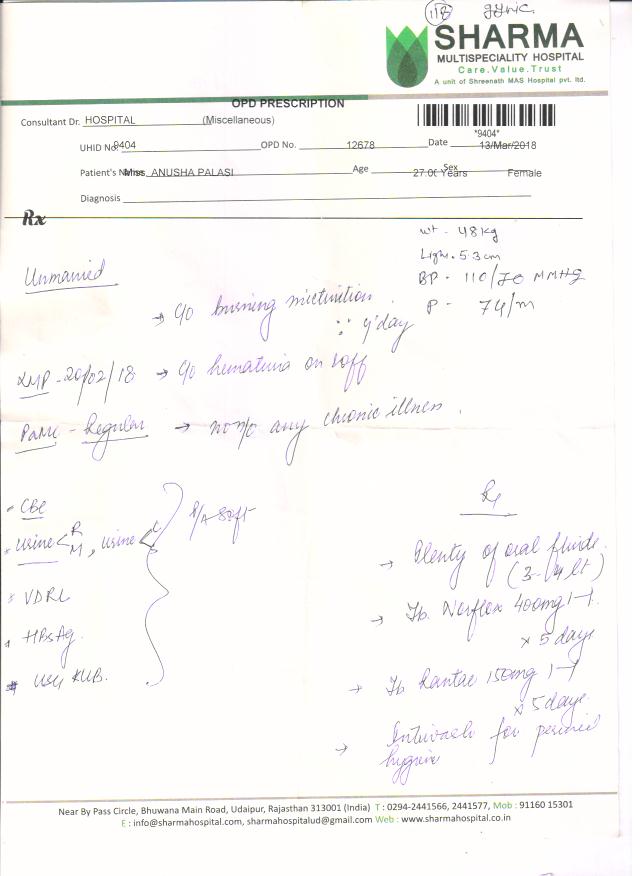 118 gynic.
SHARMA
MULTISPECIALITY HOSPITAL
Care.Value.Trust
A unit of Shreenath MAS Hospital pvt. ltd.
OPD PRESCRIPTION
Consultant Dr. HOSPITAL (Miscellaneous)
*9404*
UHID No. 9404 OPD No. 12678 Date 13/Mar/2018
Patient's Name Miss. ANUSHA PALASI Age 27.00 Years Sex Female
Diagnosis
Rx
wt - 48kg
5.3 cm
BP - 110/70 MMHg
P - 74/m
Unmarried
→ c/o burning micturition
day
LMP - 20/02/18 → c/o hematuria on & off
PaMc - Regular → no h/o any chronic illness.
CBC
urine < R M, urine < C S
P/A soft
VDRL
HBsAg.
USG KUB.
Rx
→ Plenty of oral fluids.
(3-4 lt)
→ Tb. Norflox 400mg 1-1
x 5 days
→ Tb Rantac 150mg 1-1
x 5 days.
→ Intiwash for perineal
hygiene
Near By Pass Circle, Bhuwana Main Road, Udaipur, Rajasthan 313001 (India) T : 0294-2441566, 2441577, Mob : 91160 15301
E : info@sharmahospital.com, sharmahospitalud@gmail.com Web : www.sharmahospital.co.in